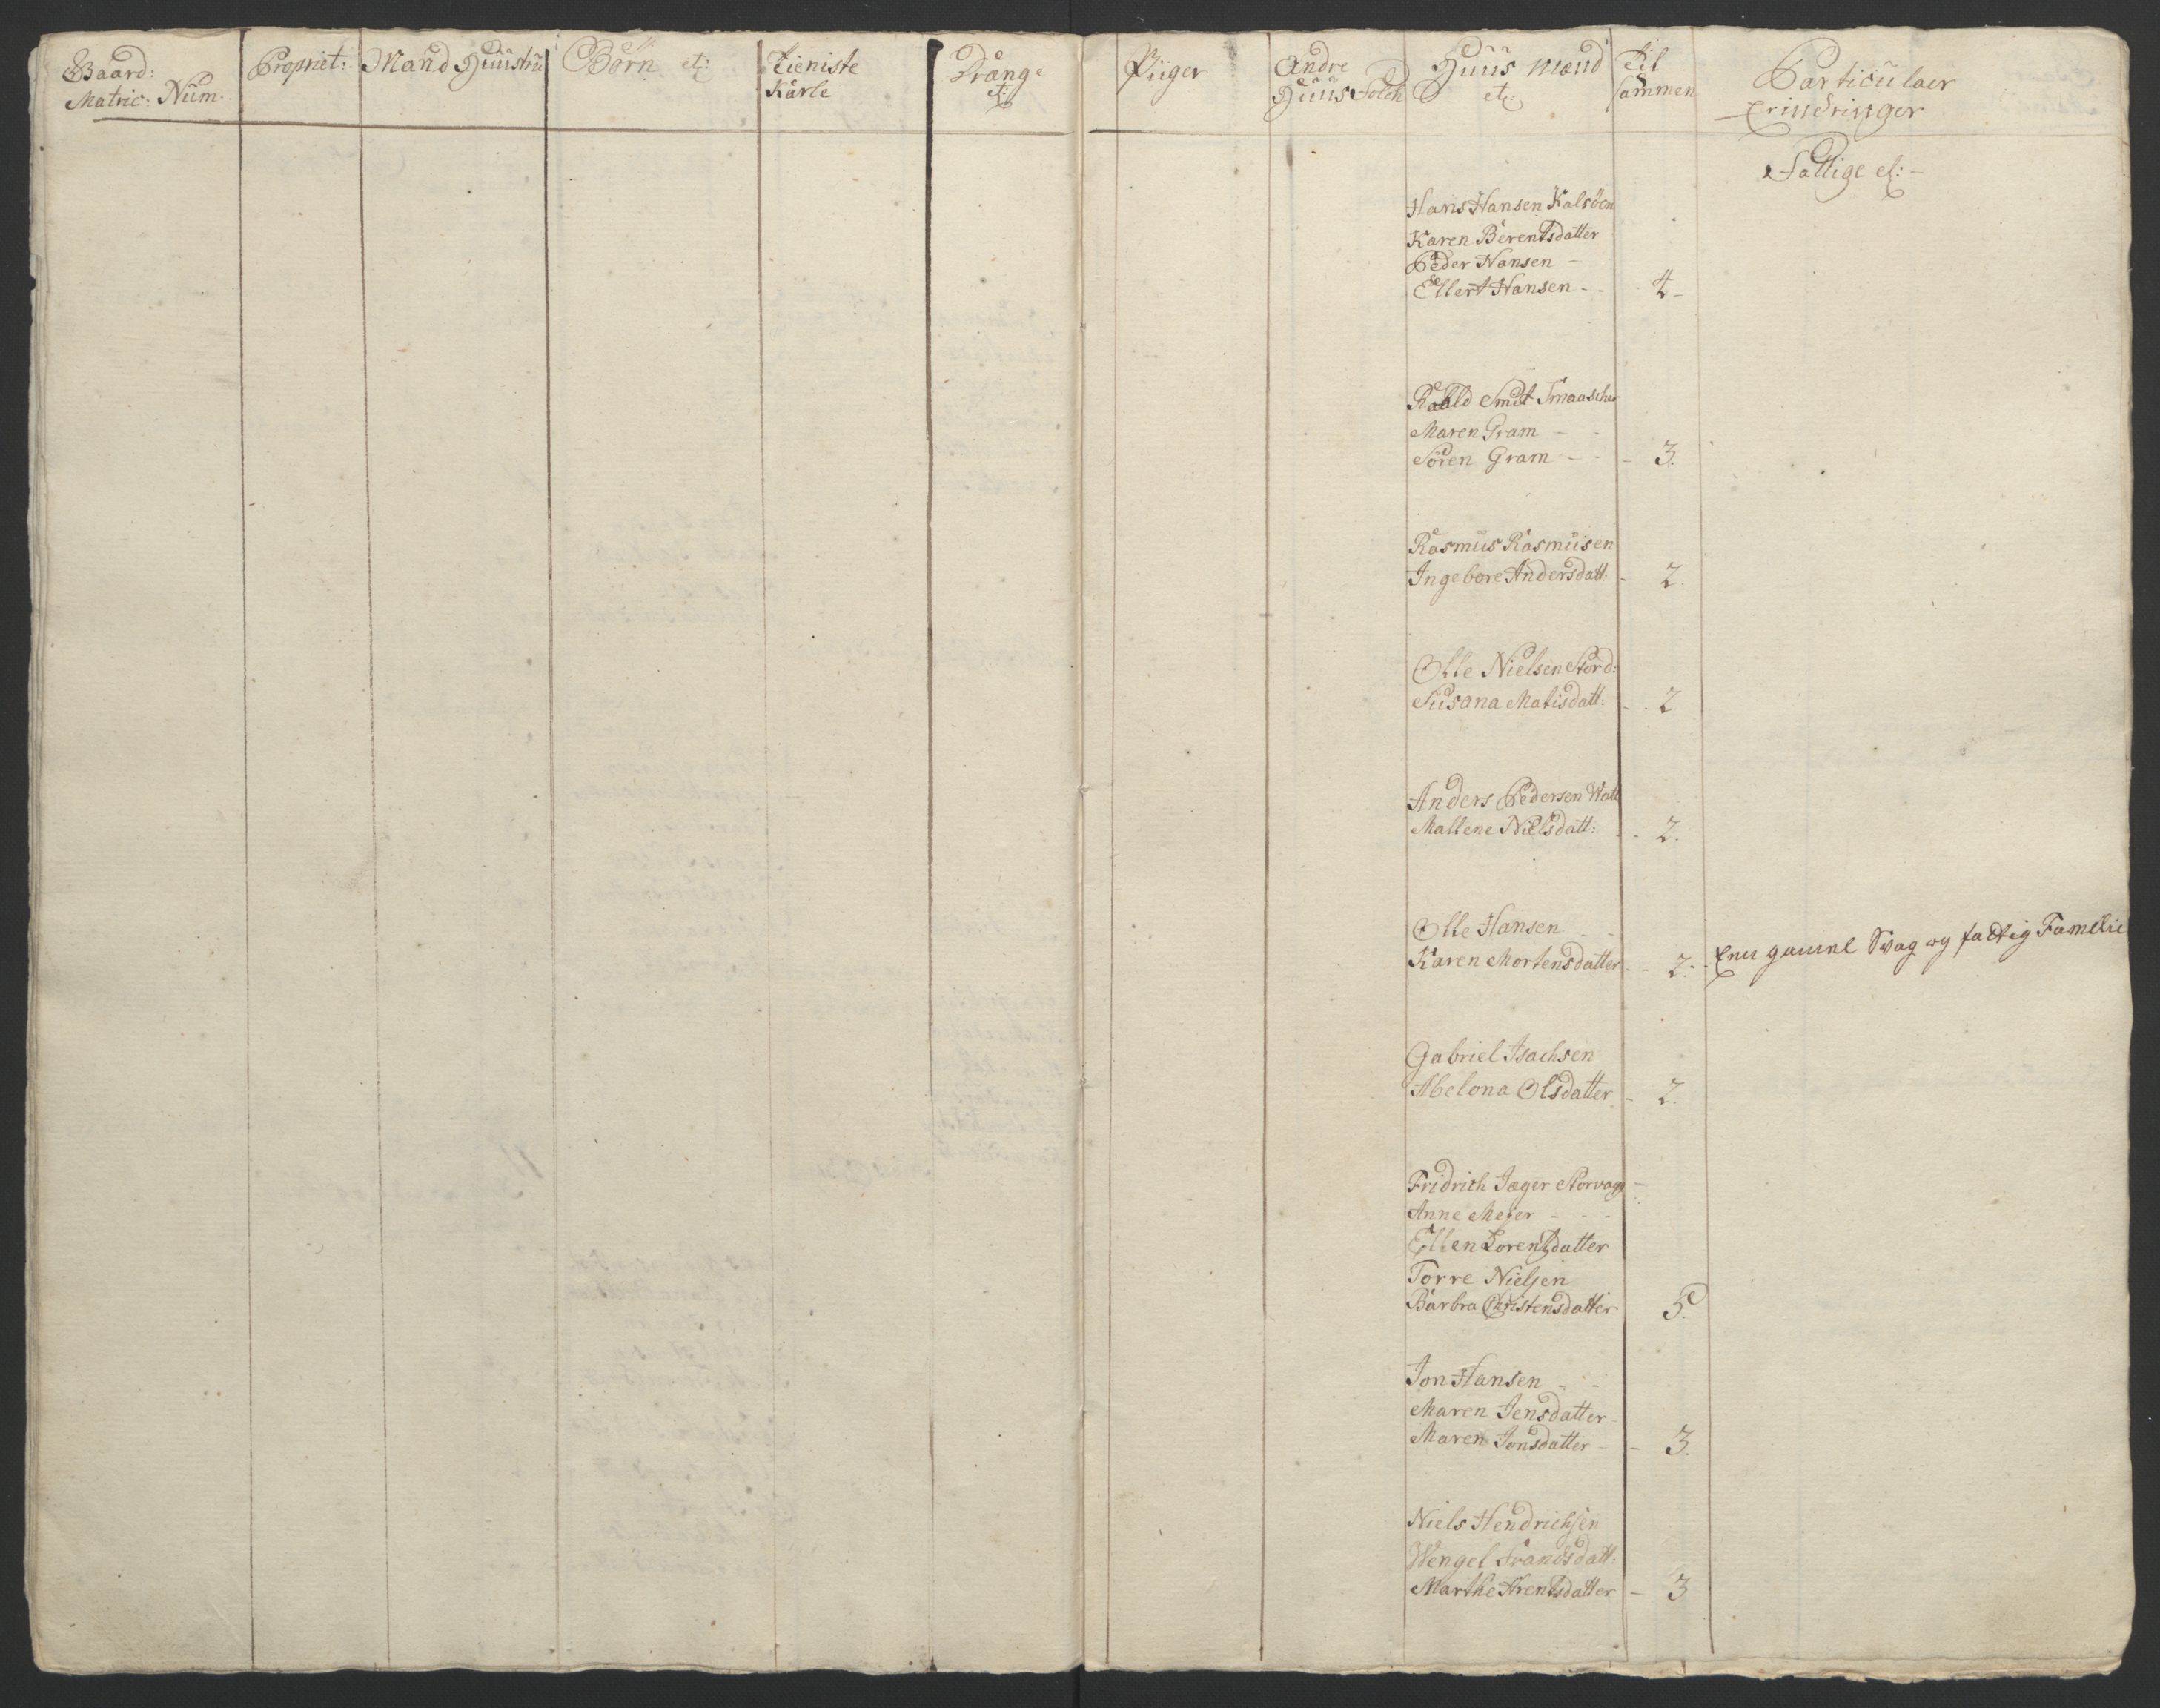 Gaard: Matric: Num.
Propriet:
Mand Huustru
Börn etc:
Tieniste Karle
Drænge etc:
Piiger
Andre Huus Folch
Huus mænd etc:
Til sammen
Particulaer Erindringer
Fattige etc: -
Hans Hansen Kalsöen
Karen Berentsdatter
Peder Hansen -
Ellert Hansen - - 4 -
Roald Smit Smaascher
Maren Gram - -
Sören Gram - - - 3.
Rasmus Rasmusen
Ingebore Andersdatt: - 2.
Olle Nielsen Stord:
Susana Matisdatt: - - 2
Anders Pedersen Watt
Mallene Nielsdatt: - - 2.
Olle Hansen - -
Karen Mortensdatter - - 2: - Een gamml Svag og fattig Famellie
Gabriel Isachsen
Abelona Olsdatter - 2.
Fridrich Jæger Storvagn -
Anne Meier - - -
Ellen Lorentzdatter
Torre Nielsen
Barbra Christensdatter 5.
Jon Hansen - -
Maren Jensdatter
Maren Jonsdatter - - 3.
Niels Hendrichsen
Wengel Frandsdatt:
Marthe Arentsdatter - 3